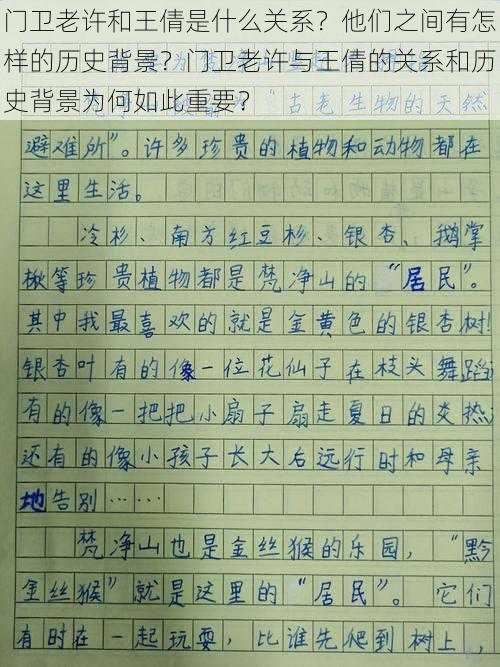 门卫老许和王倩是什么关系？他们之间有怎
样的历史背景？门卫老许与王倩的关系和历
史背景为何如此重要？
"古老生物的天然
避难所"。许多珍贵的植物和动物都在
这里生活。
冷杉、南方红豆杉、银杏、鹅掌
楸等珍贵植物都是梵净山的"居民"。
其中我最喜欢的就是金黄色的银杏树!
银杏叶有的像一位花仙子在枝头舞蹈
有的像一把把小扇子扇走夏日的炎热
还有的像小孩子长大后远行时和母亲
地告别……
梵净山也是金丝猴的乐园，"黔
金丝猴"就是这里的"居民"。它们
有时在一起玩耍，比谁先爬到树上，